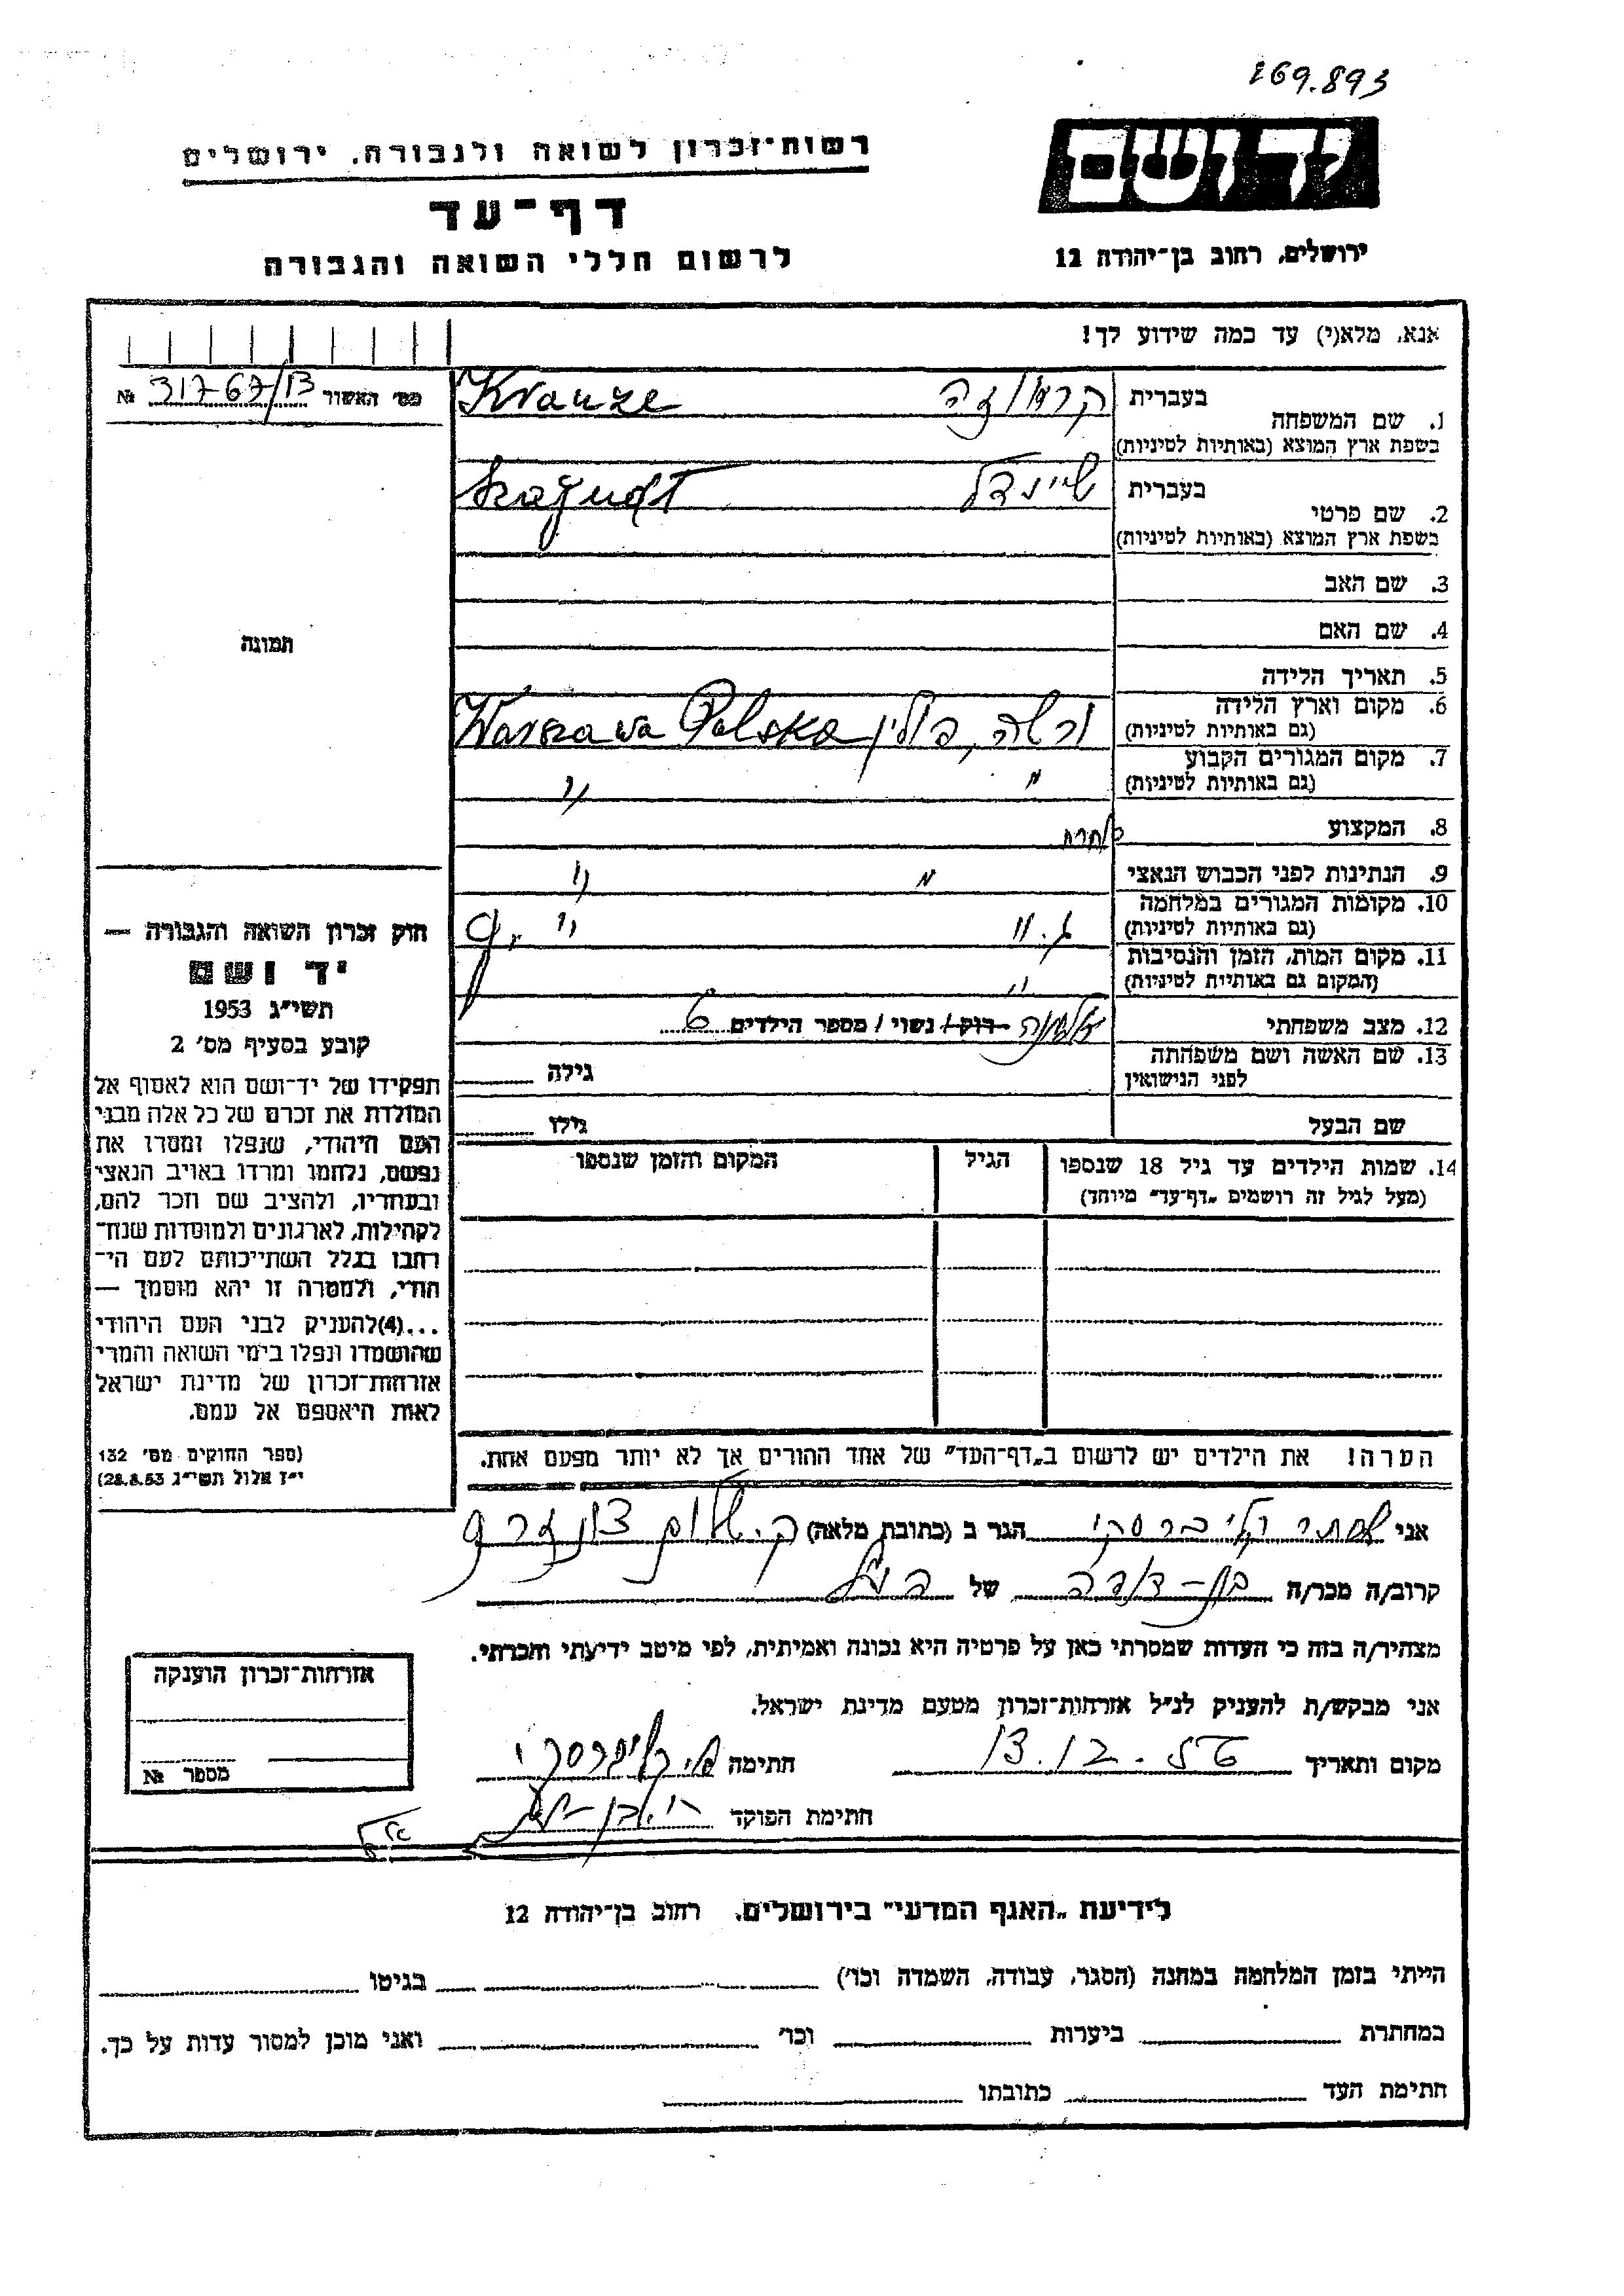 169.893
רשות־זכרון לשואה ולגבורה, ירושלים
יד ושם
דף־עד
לרשום חללי השואה והגבורה
ירושלים, רחוב בן־יהודה 12
אנא, מלא(י) עד כמה שידוע לך!
מס' האשור 31767/13 №
1. שם המשפחה
בעברית קראוזה Krauze
בשפת ארץ המוצא (באותיות לטיניות)
2. שם פרטי
בעברית שיינדל
בשפת ארץ המוצא (באותיות לטיניות)
3. שם האב
4. שם האם
תמונה
5. תאריך הלידה
6. מקום וארץ הלידה ורשה, פולין Warszawa Polska
(גם באותיות לטיניות)
7. מקום המגורים הקבוע " "
(גם באותיות לטיניות)
8. המקצוע
9. הנתינות לפני הכבוש הנאצי " "
10. מקומות המגורים במלחמה ג. " g. "
(גם באותיות לטיניות)
11. מקום המות, הזמן והנסיבות "
(המקום גם באותיות לטיניות)
12. מצב משפחתי אלמנה רוק / נשוי / מספר הילדים 6
13. שם האשה ושם משפחתה גילה
לפני הנישואין
שם הבעל גילו
14. שמות הילדים עד גיל 18 שנספו הגיל המקום והזמן שנספו
(מעל לגיל זה רושמים „דף־עד" מיוחד)
חוק זכרון השואה והגבורה —
יד ושם
תשי"ג 1953
קובע בסעיף מס' 2
תפקידו של יד־ושם הוא לאסוף אל
המולדת את זכרם של כל אלה מבני
העם היהודי, שנפלו ומסרו את
נפשם, נלחמו ומרדו באויב הנאצי
ובעוזריו, ולהציב שם וזכר להם,
לקהילות, לארגונים ולמוסדות שנח־
רבו בגלל השתייכותם לעם הי־
הודי, ולמטרה זו יהא מוסמך —
...(4)להעניק לבני העם היהודי
שהושמדו ונפלו בימי השואה והמרי
אזרחות־זכרון של מדינת ישראל
לאות היאספם אל עמם.
(ספר החוקים מס' 132
י"ז אלול תשי"ג 28.8.53)
הערה! את הילדים יש לרשום ב„דף־העד" של אחד ההורים אך לא יותר מפעם אחת.
אני אסתר קליברסקי הגר ב (כתובת מלאה) ק. שלום
קרוב/ה מכר/ה בת־דודה של הנ"ל
מצהיר/ה בזה כי העדות שמסרתי כאן על פרטיה היא נכונה ואמיתית, לפי מיטב ידיעתי והכרתי.
אני מבקש/ת להעניק לנ"ל אזרחות־זכרון מטעם מדינת ישראל.
מקום ותאריך 13.12.56 חתימה
חתימת הפוקד
אזרחות־זכרון הוענקה
מספר №
לידיעת „האגף המדעי" בירושלים, רחוב בן־יהודה 12
הייתי בזמן המלחמה במחנה (הסגר, עבודה, השמדה וכו') בגיטו
במחתרת ביערות וכו' ואני מוכן למסור עדות על כך.
חתימת העד כתובתו